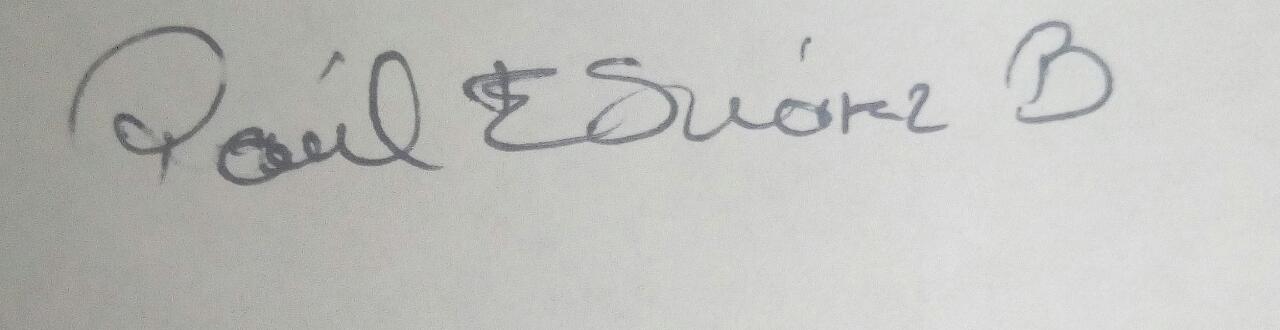 Raúl E Suárez B